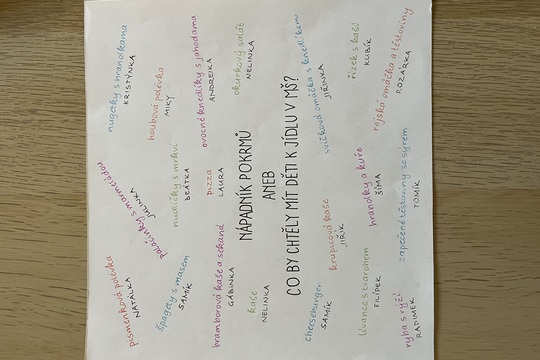 písmenková polévka
NATÁLKA
palačinky s marmeládou
JULINKA
nugetky s hranolkama
KRISTÝNKA
houbová polévka
MIKY
špagety s masem
SAMÍK
nudličky s mrkví
BEÁTKA
ovocné knedlíky s jahodama
ANDREJKA
bramborová kaše a sekaná
GÁBINKA
pizza
LAURA
okurkový salát
NELINKA
kaše
NELINKA
NÁPADNÍK POKRMŮ
ANEB
CO BY CHTĚLY MÍT DĚTI K JÍDLU V MŠ?
cheeseburger
SAMÍK
krupicová kaše
JIŘÍK
svíčková omáčka s knedlíkem
JIŘINKA
lívance s tvarohem
FILÍPEK
hranolky a kuře
SÍMA
řízek s kaší
KUBÍK
rajská omáčka a těstoviny
ROZÁRKA
ryba s rýží
RADIMEK
zapečené těstoviny se sýrem
TOMÍK